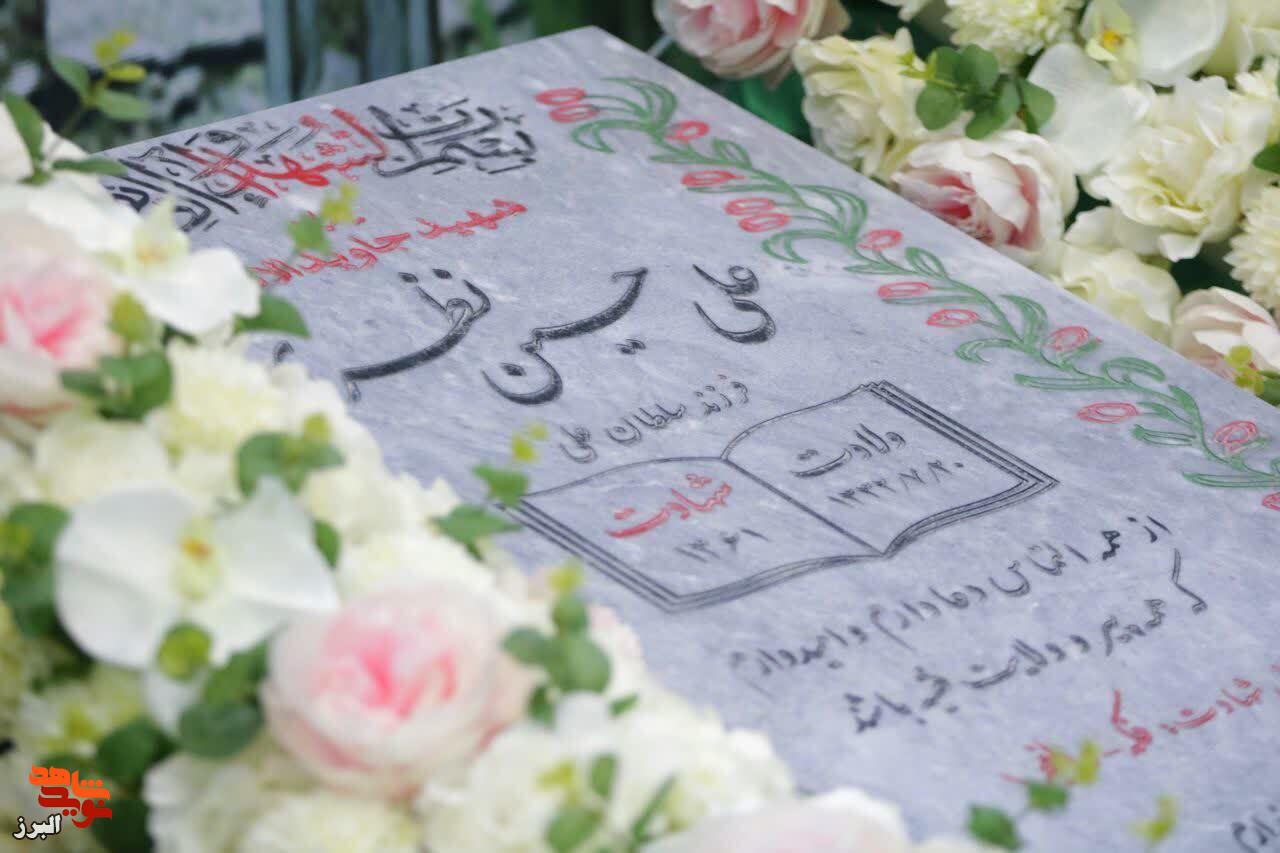 بسم رب الشهداء و
شهید جاویدالا
علی حسین نظر
فرزند سلطان علی
ولادت
۱۳۴۲/۷/۲۰
شهادت
۱۳۶۱
از همه التماس دعا دارم و امیدوارم
که همه پیرو ولایت فقیه باشد
شهادت: فکه
نوید شاهد
البرز